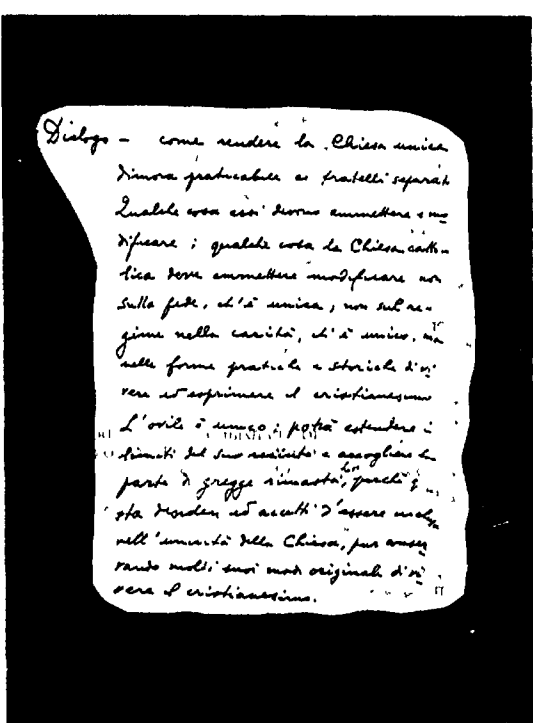 Dialogo - come rendere la Chiesa unica
dimora praticabile ai fratelli separati
Qualche cosa essi devono ammettere e mo
dificare; qualche cosa la Chiesa catto-
lica deve ammettere modificare non
sulla fede, ch'è unica, non sul re-
gime nella carità, ch'è unico, ma
nelle forme pratiche e storiche di vi
vere ed esprimere il cristianesimo
L'ovile è unico; potrà estendere i
limiti del suo recinto e accogliere la
parte di gregge rimasta, perché q
sta desideri ed accetti d'essere
nell'unicità della Chiesa, pur conser
vando molti suoi modi originali di vi
vere il cristianesimo.